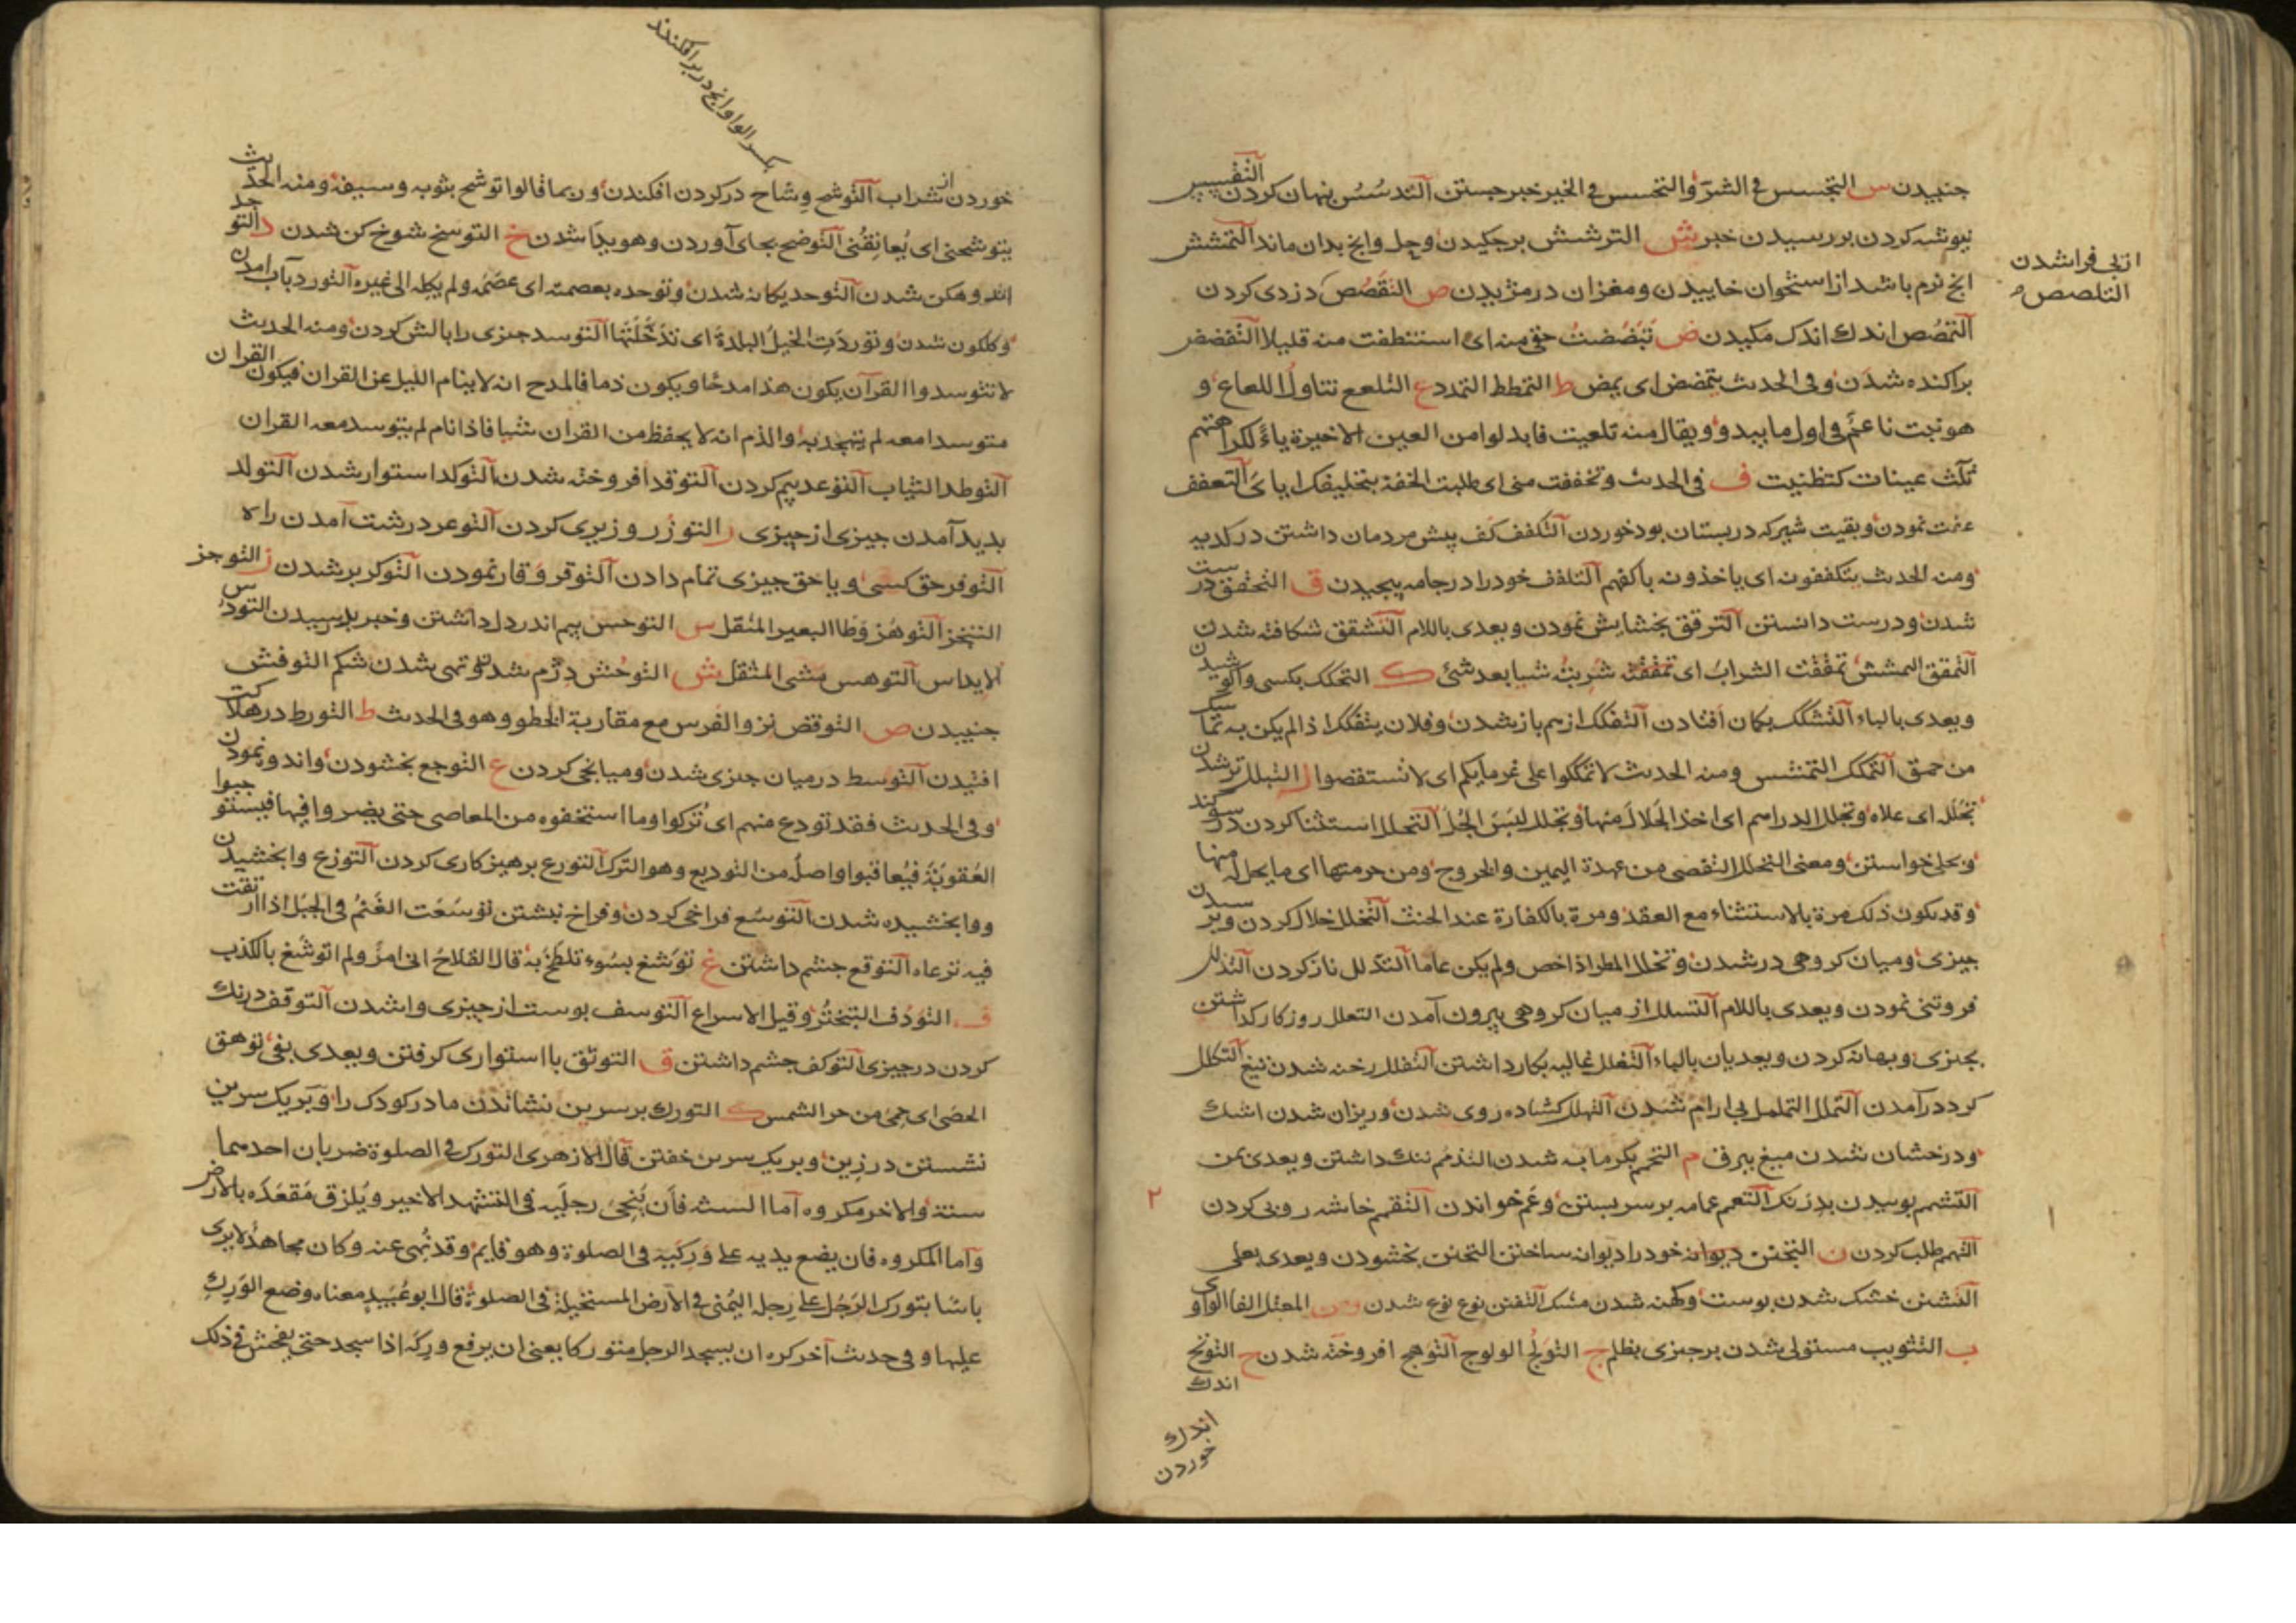 جنبیدن س التجسس فی الشر والتحسس فی الخیر خبر جستن التدسس پنهان کردن
نیوشه کردن بررسیدن خبر ش الترشش برچکیدن وانچ بدان ماند التمشش
از پی فراشدن
التلصص
انچ نرم باشد از استخوان خاییدن ومغزان در مزیدن ص التقصص دزدی کردن
التمصص اندك اندك مکیدن ض تبضضت حقی منه ای استنظفت منه قلیلا التفضض
براکنده شدن وفی الحدیث یتمضض ای یمض ط التمطط التمدد ع التلعع تناول اللعاع و
هو نبت ناعم فی اول ما یبدو ویقال منه تلعیت فابدلوا من العین الاخیرة یاء لکراهتهم
ثلث عینات کتظنیت ف فی الحدیث وتخففت منی ای طلبت الخفة بتخلیفك ایای التعفف
عفت نمودن وبقیت شیر که در پستان بود خوردن التکفف کف پیش مردمان داشتن در کدیه
ومنه الحدیث یتکففون ای یاخذونه باکفهم التلفف خود را در جامه پیچیدن ق التحقق درست
شدن ودرست دانستن الترقق بخشایش نمودن ویعدی باللام التشقق شکافته شدن
التمقق تمققت الشراب ای شربته شیا بعد شئ ك التحکك بکسی واکوشیدن
ویعدی بالباء التشکك بکمان افتادن التفکك از هم باز شدن وفلان یتفکك اذا لم یکن به تماسك
من حمق التمکك التمشش ومنه الحدیث لا تمککوا علی غرمایکم ای لا تستقصوا ل التبلل تر شدن
تجلله ای علاه وتجلل الدراهم ای اخذ الجلال منها وتجلل لبس الجل التحلل استثنا کردن در سوکند
وبحلی خواستن ومعنی التحلل التقصی من عهدة الیمین والخروج ومن حرمتها ای ما یحل له منها
وقد یکون ذلك مرة بالاستثناء مع العقد ومرة بالکفارة عند الحنث التخلل خلال کردن
چیزی ومیان کروهی در شدن وتخلل المطر اذا خص ولم یکن عاما التدلل ناز کردن التذلل
فروتنی نمودن ویعدی باللام التسلل از میان کروهی بیرون آمدن التعلل روزکار کداشتن
بچیزی وبهانه کردن ویعدیان بالباء التغلل غالیه بکار داشتن التفلل رخنه شدن تیغ التکلل
کرد درآمدن التملل التململ بی ارام شدن التهلل کشاده روی شدن وریزان شدن اشك
ودرخشان شدن میغ ببرق م التحمم بکرمابه شدن التذمم ننك داشتن ویعدی بمن
التشمم بوییدن بدرنك التعمم عمامه بر سر بستن وعم خواندن التقمم خاشه روبی کردن
التهمم طلب کردن ن التجنن خود را دیوانه ساختن التحنن بخشودن ویعدی بعلی
التشنن خشك شدن پوست وکهنه شدن مشك التفنن نوع نوع شدن ومن المعتل الفا الواو
ب التثویب مستولی شدن بر چیزی بظلم ج التولج الولوج التوهج افروخته شدن ح التوتح
اندك
اندك
خوردن
بکسر الواو انچ در بر افکنند
خوردن از شراب التوشح وشاح در کردن افکندن وربما قالوا توشح بثوبه وسیفه ومنه الحدیث
یتوشحنی ای یعانقنی التوضح بجای آوردن وهویدا شدن خ التوسخ شوخ کن شدن د التوجد
اندوهکن شدن التوحد یکانه شدن وتوحده بعصمته ای عصمه ولم یکله الی غیره التورد بآب امدن
وکلکون شدن وتوردت الخیل البلدة ای تدخلتها التوسد چیزی را بالش کردن ومنه الحدیث
لا تتوسدوا القرآن یکون هذا مدحا ویکون ذما فالمدح انه لا ینام اللیل عن القران فیکون القران
متوسدا معه لم یتهجد به والذم انه لا یحفظ من القران شیا فاذا نام لم یتوسد معه القران
التوطد الثبات التوعد بیم کردن التوقد افروخته شدن التوکد استوار شدن التولد
بدید آمدن چیزی از چیزی ر التوزر وزیری کردن التوعر درشت آمدن راه
التوفر حق کسی ویا حق چیزی تمام دادن التوقر وقار نمودن التوکر بر شدن ز التوجز
التنجز التوهز وطا البعیر المثقل س التوجس بیم اندر دل داشتن وخبر بررسیدن التودس
الایداس التوهس مشی المثقل ش التوحش دژم شدن وتهی شدن شکم التوفش
جنبیدن ص التوقص نزو الفرس مع مقاربة الخطو وهو فی الحدیث ط التورط در هلاکت
افتیدن التوسط در میان چیزی شدن ومیانجی کردن ع التوجع بخشودن واندوه نمودن
وفی الحدیث فقد تودع منهم ای ترکوا وما استخفوه من المعاصی حتی یصروا فیها فیستوجبوا
العقوبة فیعاقبوا واصله من التودیع وهو الترك التورع پرهیزکاری کردن التوزع وابخشیدن
ووابخشیده شدن التوسع فراخی کردن وفراخ نشستن توسعت الغنم فی الجبل اذا ارتقت
فیه ترعاه التوقع چشم داشتن غ توشغ بسوء تلطخ به قال القلاخ انی امرؤ لم اتوشغ بالکذب
ف التوذف التبختر وقیل الاسراع التوسف پوست از چیزی وا شدن التوقف درنك
کردن در چیزی التوکف چشم داشتن ق التوثق با استواری کرفتن ویعدی بفی توهق
الحصی ای حمی من حر الشمس ك التورك بر سرین نشاندن مادر کودك را وبر یك سرین
نشستن در زین وبر یك سرین خفتن قال الازهری التورك فی الصلوة ضربان احدهما
سنة والاخر مکروه اما السنة فان ینحی رجلیه فی التشهد الاخیر ویلزق مقعده بالارض
واما المکروه فان یضع یدیه علی ورکیه فی الصلوة وهو قایم وقد نهی عنه وکان مجاهد لا یری
باسا بتورك الرجل علی رجله الیمنی فی الارض المستحیلة فی الصلوة قال ابو عبید معناه وضع الورك
علیها وفی حدیث آخر کره ان یسجد الرجل متورکا یعنی ان یرفع ورکه اذا سجد حتی یفحش فی ذلك